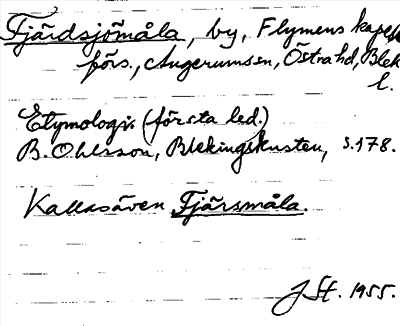 Fjärdsjömåla, by, Flymens kapell
förs., Augerums sn, Östra hd, Blek
l.
Etymologi: (första led.)
B. Ohlsson, Blekingekusten, s. 178.
Kallas även Fjärsmåla.
J St. 1955.